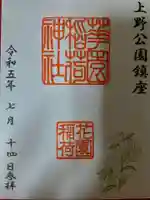 上野公園鎮座
花園
稲荷
神社
花園
稲荷
令和五年 七月 十四日参拝